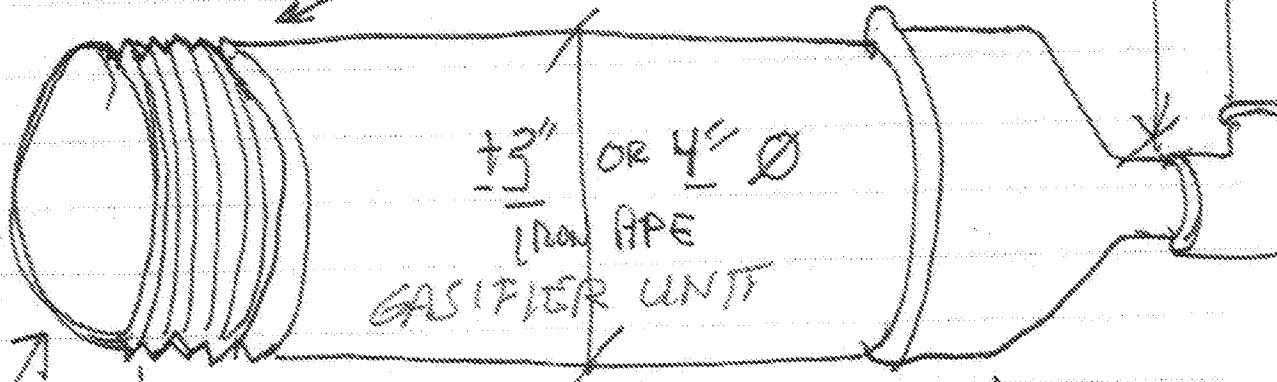 ±3" OR 4" Ø
IRON PIPE
GASIFIER UNIT